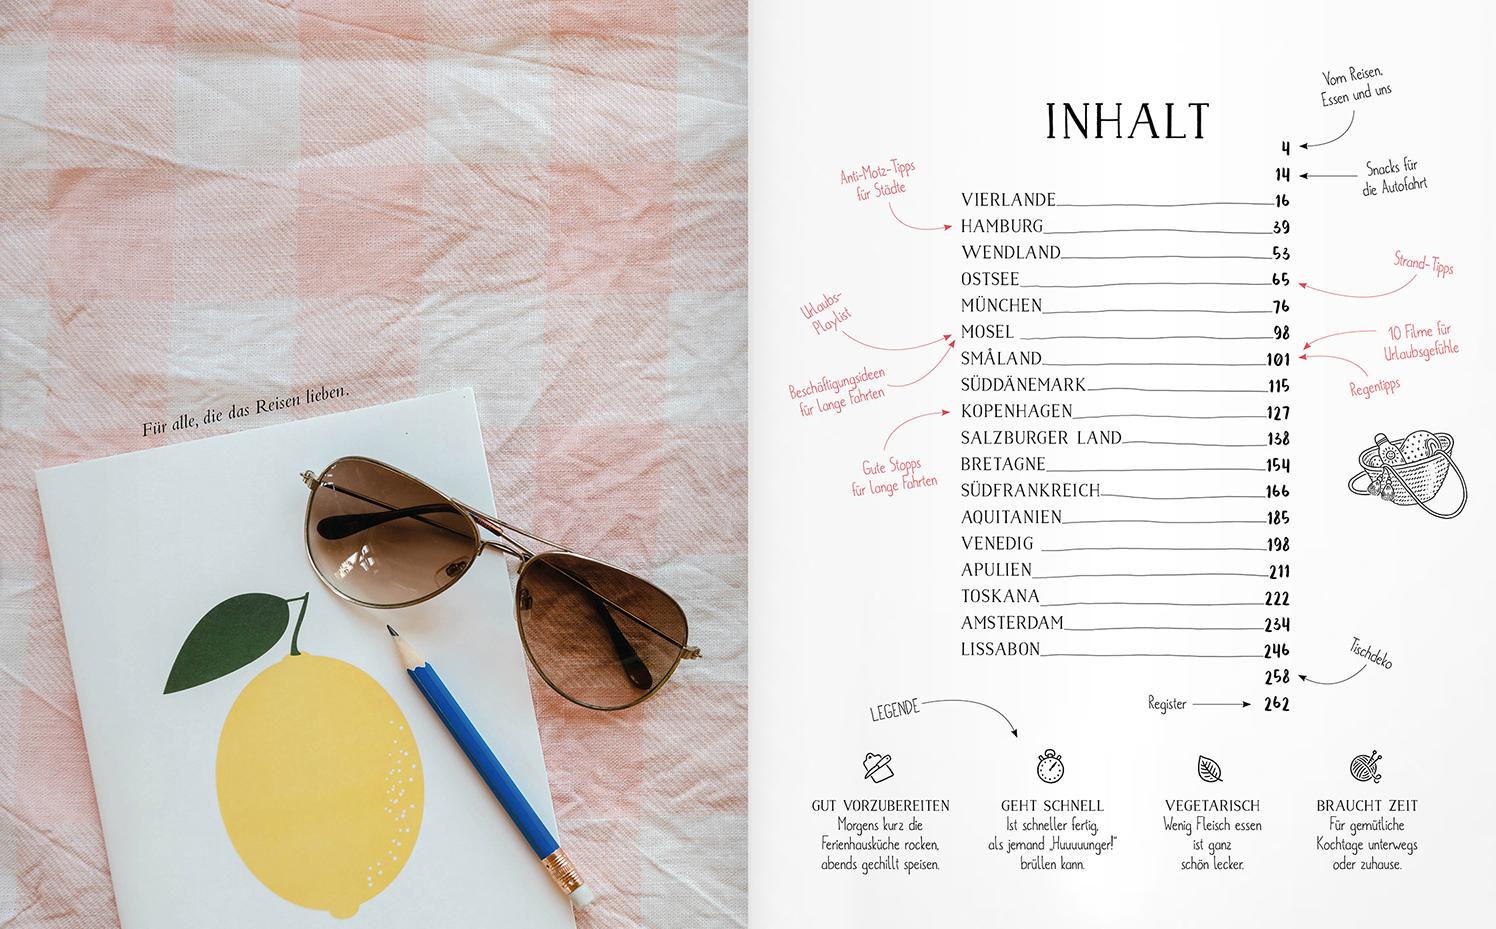 Für alle, die das Reisen lieben.
INHALT
Vom Reisen,
Essen und uns
4
14
Snacks für
die Autofahrt
Anti-Motz-Tipps
für Städte
VIERLANDE 16
HAMBURG 39
WENDLAND 53
OSTSEE 65
Strand-Tipps
MÜNCHEN 76
Urlaubs-
Playlist
MOSEL 98
10 Filme für
Urlaubsgefühle
SMÅLAND 101
Regentipps
Beschäftigungsideen
für lange Fahrten
SÜDDÄNEMARK 115
KOPENHAGEN 127
SALZBURGER LAND 138
Gute Stopps
für lange Fahrten
BRETAGNE 154
SÜDFRANKREICH 166
AQUITANIEN 185
VENEDIG 198
APULIEN 211
TOSKANA 222
AMSTERDAM 234
LISSABON 246
Tischdeko
258
Register 262
LEGENDE
GUT VORZUBEREITEN
Morgens kurz die
Ferienhausküche rocken,
abends gechillt speisen.
GEHT SCHNELL
Ist schneller fertig,
als jemand „Huuuuunger!“
brüllen kann.
VEGETARISCH
Wenig Fleisch essen
ist ganz
schön lecker.
BRAUCHT ZEIT
Für gemütliche
Kochtage unterwegs
oder zuhause.